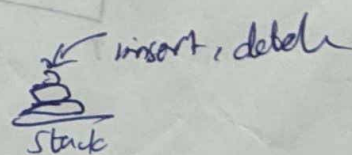 insert, delete
stack